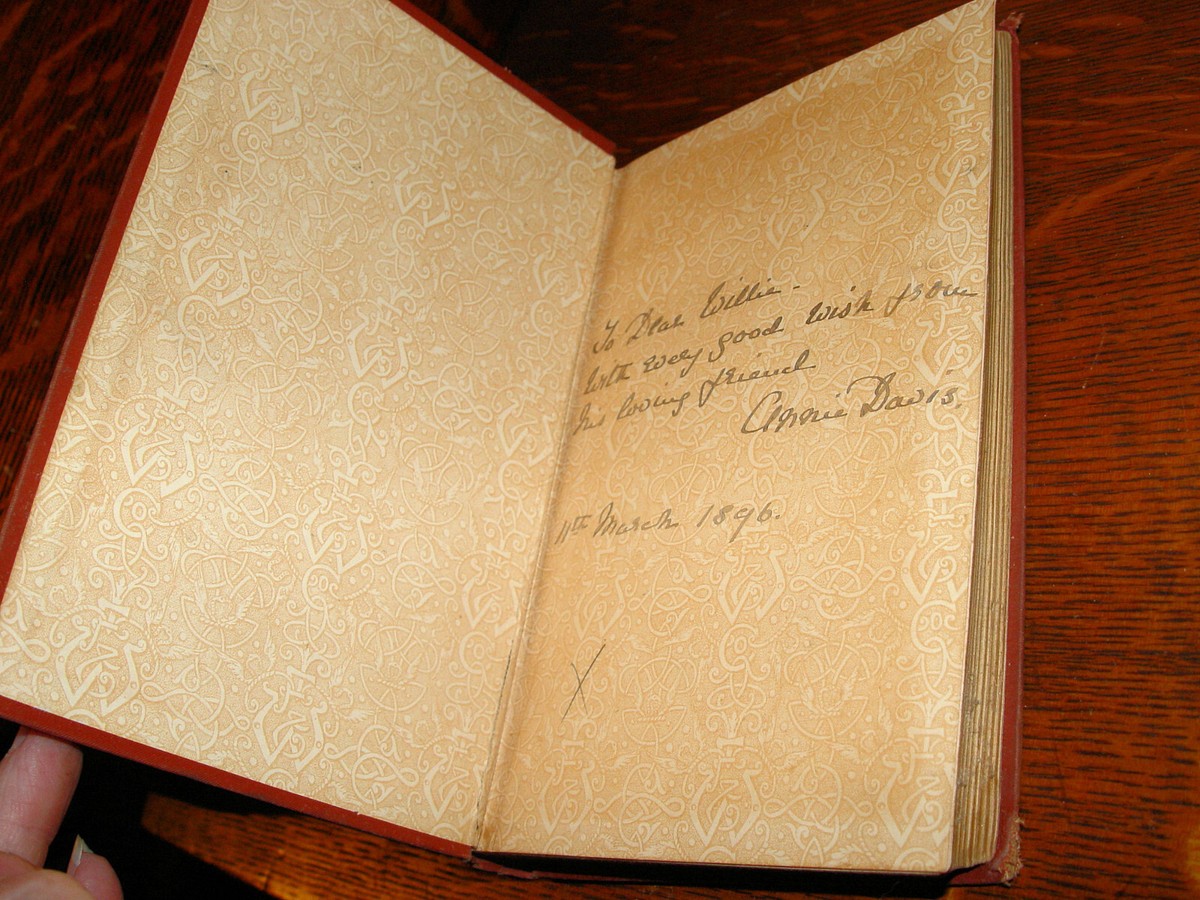 To Dear Willie -
With every good wish from
his loving friend
Annie Davis.
11th March 1896.
X